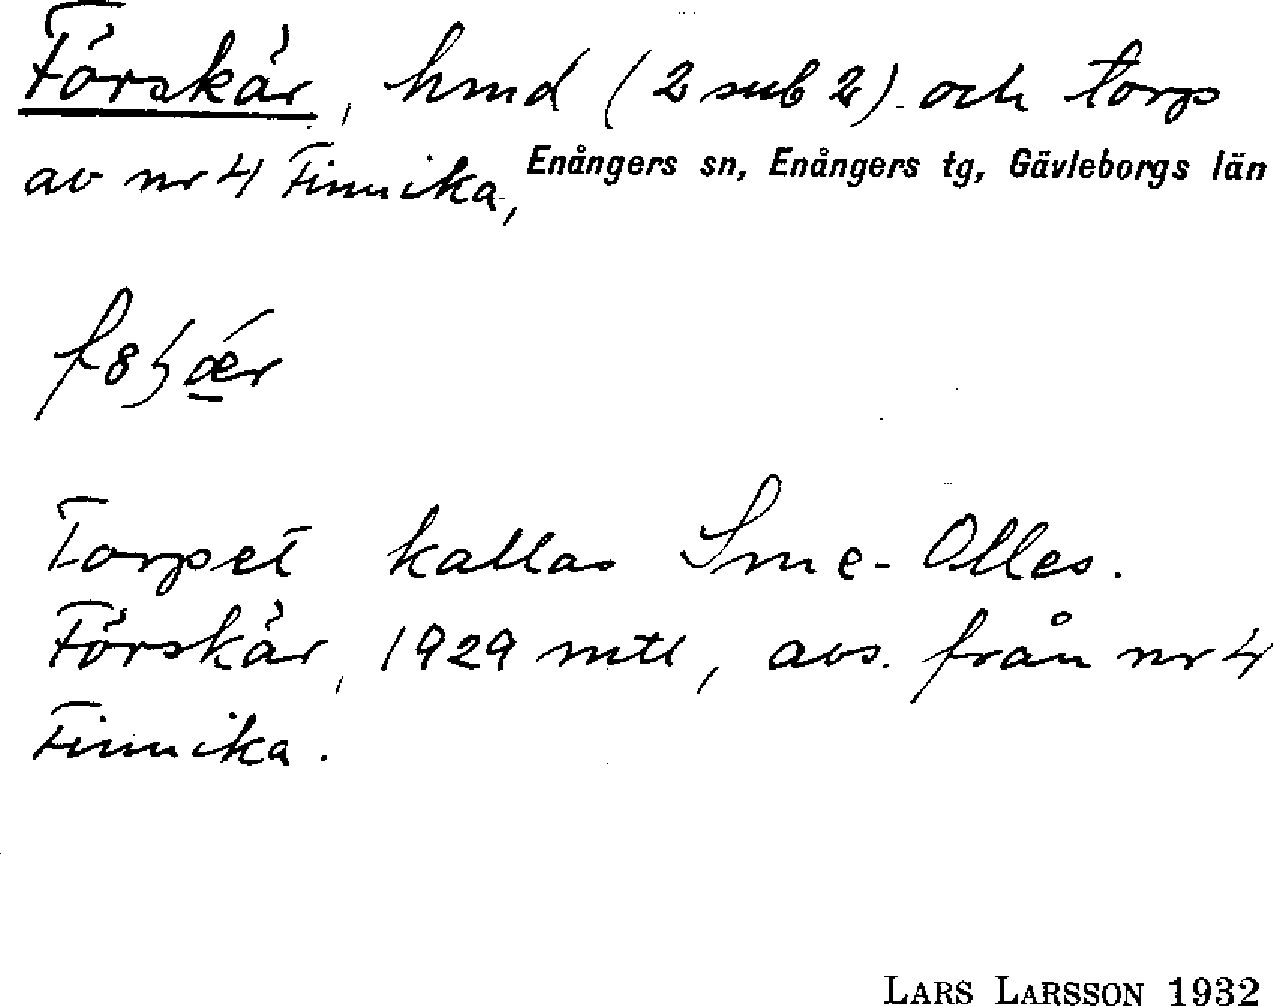 Förskär, hmd (2 sub 2) och torp
av nr 4 Finnika, Enångers sn, Enångers tg, Gävleborgs län
Torpet kallas Sme-Olles.
Förskär, 1929 mtl, avs. från nr 4
Finnika.
LARS LARSSON 1932